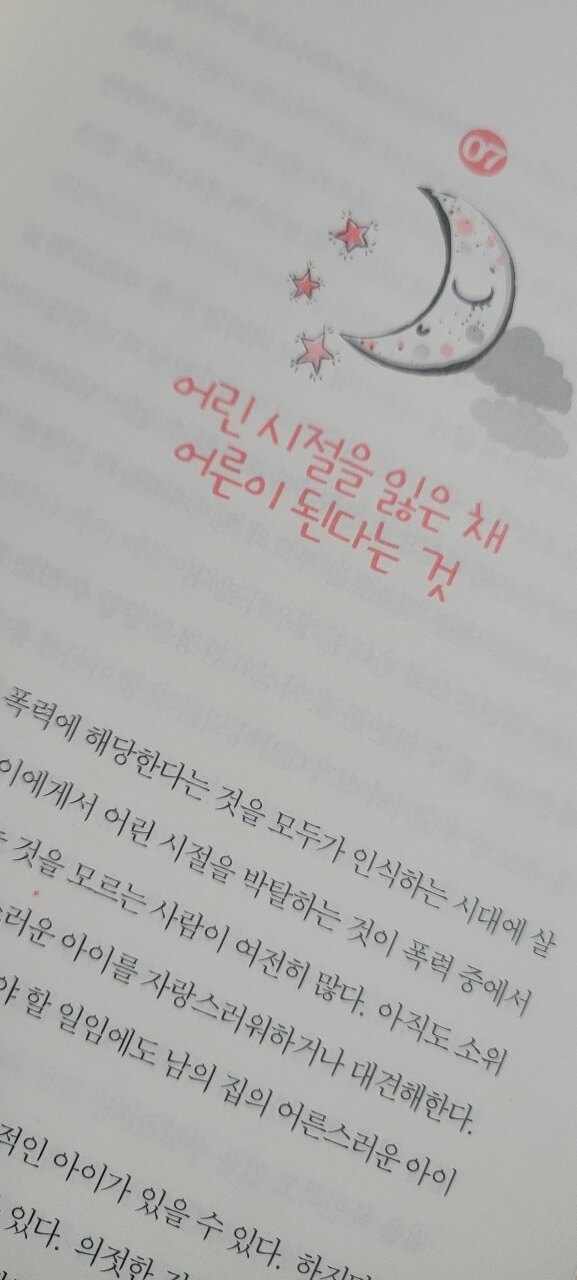 07
어린 시절을 잃은 채
어른이 된다는 것
폭력에 해당한다는 것을 모두가 인식하는 시대에 살
이에게서 어린 시절을 박탈하는 것이 폭력 중에서
것을 모르는 사람이 여전히 많다. 아직도 소위
스러운 아이를 자랑스러워하거나 대견해한다.
야 할 일임에도 남의 집의 어른스러운 아이
적인 아이가 있을 수 있다. 하지만
있다. 의젓한